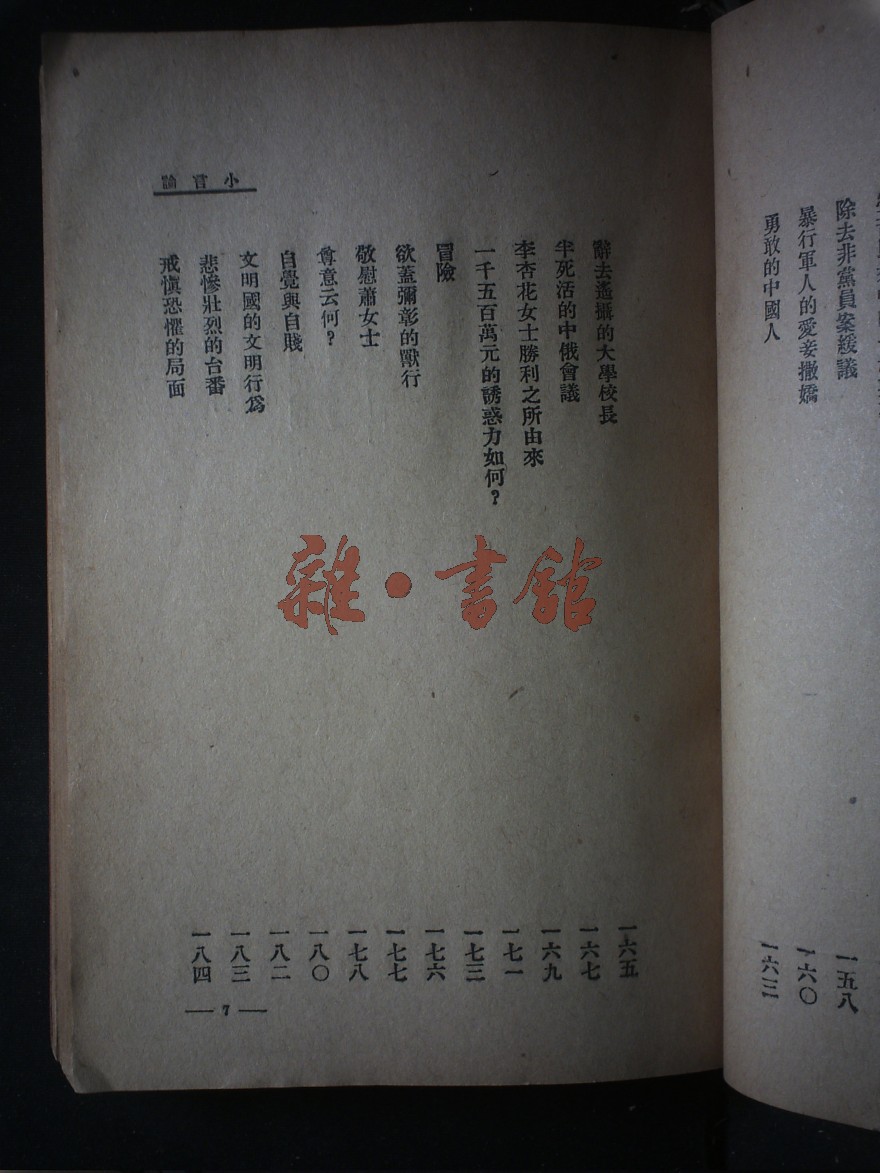 除去非黨員案緩議 一五八
暴行軍人的愛妾撒嬌 一六〇
勇敢的中國人 一六三
辭去遙攝的大學校長 一六五
半死活的中俄會議 一六七
李杏花女士勝利之所由來 一六九
一千五百萬元的誘惑力如何？ 一七一
冒險 一七三
欲蓋彌彰的獸行 一七六
敬慰蕭女士 一七七
尊意云何？ 一七八
自覺與自賤 一八〇
文明國的文明行爲 一八二
悲慘壯烈的台番 一八三
戒愼恐懼的局面 一八四
小言論
— 7 —
雜·書館